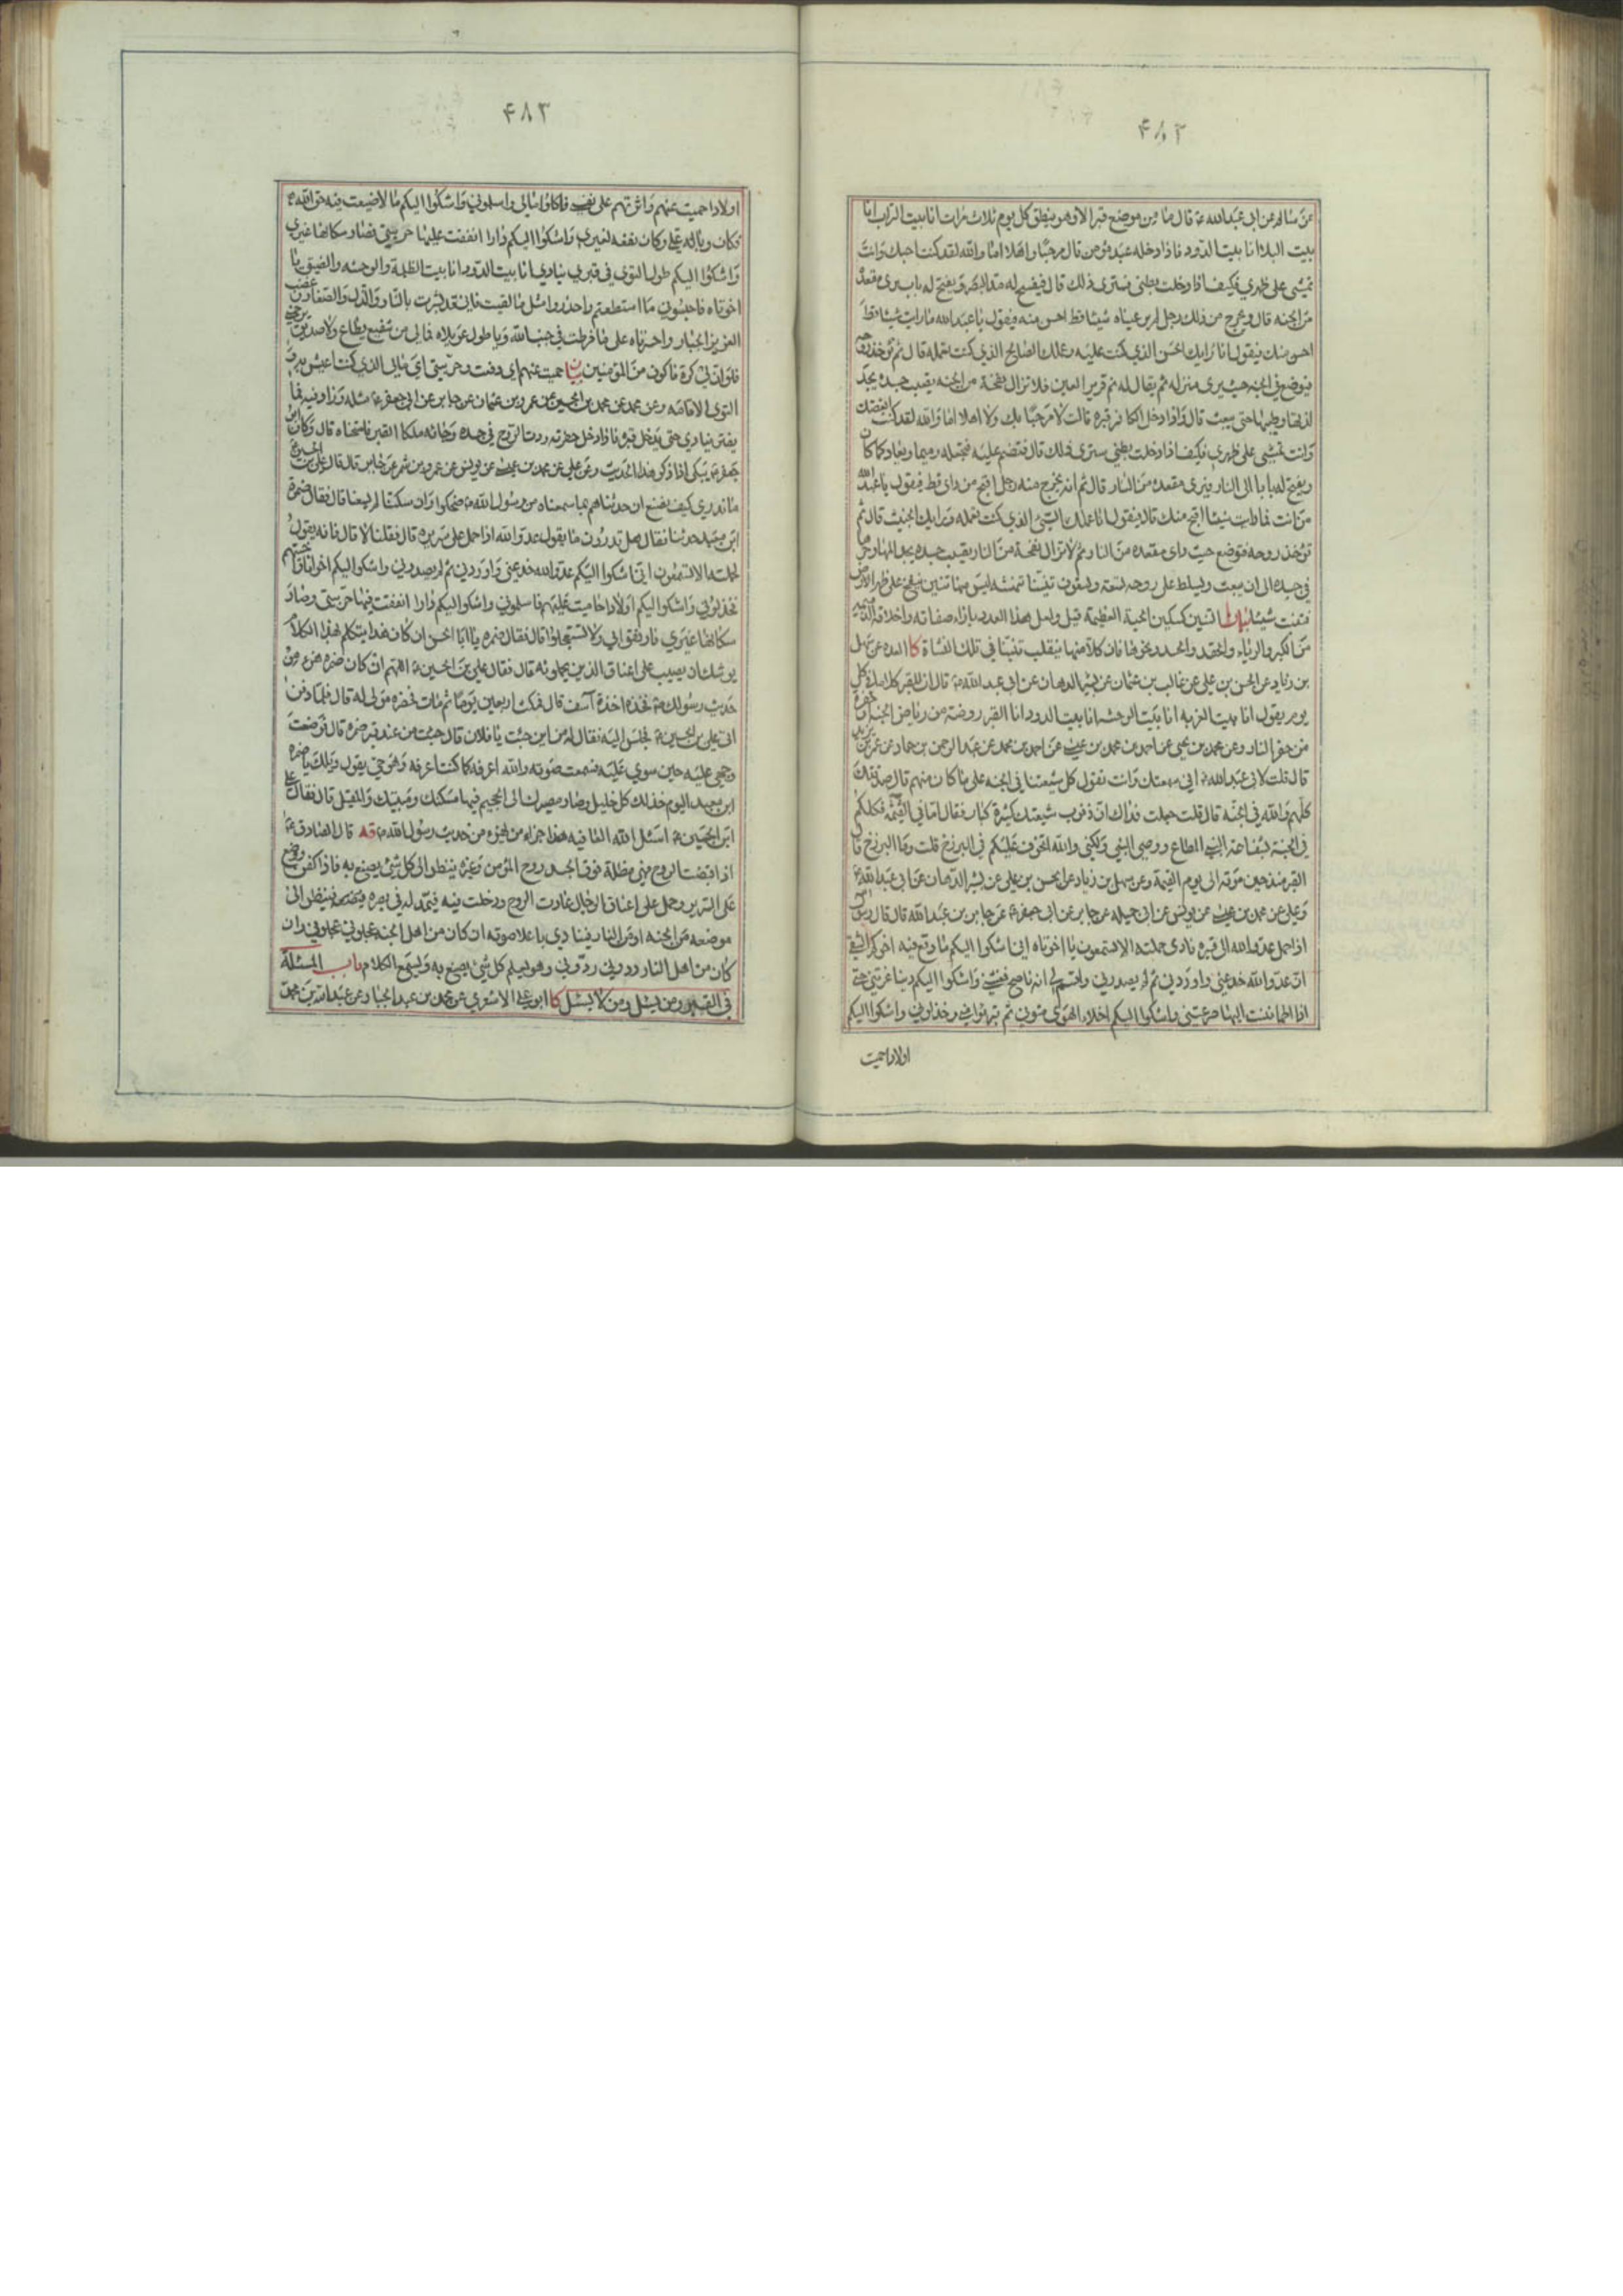 ۴۸۲
عن سالم عن ابی عبدالله ع قال ما من موضع قبر الا وهو ینطق کل یوم ثلاث مرات انا بیت التراب انا
بیت البلاء انا بیت الدود فاذا دخله عبد مؤمن قال مرحبًا واهلا اما والله لقد کنت احبک وانت
تمشی علی ظهری فکیف اذا دخلت بطنی فستری ذلک قال فیفسح له مد البصر ویفتح له باب یری مقعده
من الجنه قال ویخرج من ذلک رجل لم یر عیناه شیئا قط احسن منه فیقول یا عبدالله ما رایت شیئا قط
احسن منک فیقول انا رایک الحسن الذی کنت علیه وعملک الصالح الذی کنت تعمله قال ثم تؤخذ روحه
فتوضع فی الجنه حیث یری منزله ثم یقال له نم قریر العین فلا تزال نفحة من الجنه یصیب جسده یجد
لذتها وطیبها حتی یبعث قال واذا دخل الکافر قبره قالت لا مرحبًا بک ولا اهلا اما والله لقد کنت ابغضک
وانت تمشی علی ظهری فکیف اذا دخلت بطنی ستری ذلک قال فتضم علیه فتجعله رمیما ویعاد کما کان
ویفتح له بابا الی النار فیری مقعده من النار قال ثم انه یخرج منه رجل اقبح من رای قط فیقول یا عبدالله
من انت ما رایت شیئا اقبح منک قال فیقول انا عملک السیئ الذی کنت تعمله ورایک الخبیث قال ثم
تؤخذ روحه فتوضع حیث رای مقعده من النار ثم لا تزال نفخة من النار یصیب جسده یجد المها وحرها
فی جسده الی ان یبعث ویسلط علی روحه تسعة وتسعون تنینا تنهشه لیس فیها تنین ینفخ علی ظهر الارض
فتنبت شیئا بیان التنین کسکین الحیة العظیمة قیل ولعل هذا العدد بازاء صفاته واخلاقه الذمیمة
من الکبر والریاء والحقد والحسد ونحوها فان کلا منها ینقلب تنینا فی تلک النشاة کا العدة عن سهل
بن زیاد عن الحسن بن علی عن غالب بن عثمان عن بشیر الدهان عن ابی عبدالله ع قال ان للقبر کلاما فی کل
یوم یقول انا بیت الغربه انا بیت الوحشه انا بیت الدود انا القبر روضة من ریاض الجنه او حفرة
من حفر النار وعن محمد بن یحیی عن احمد بن محمد بن عیسی عن احمد بن محمد عن عبد الرحمن بن حماد عن عمر بن یزید
قال قلت لابی عبدالله ع انی سمعتک وانت تقول کل شیعتنا فی الجنه علی ما کان منهم قال صدقتک
کلهم والله فی الجنه قال قلت جعلت فداک ان ذنوب شیعتک کثیرة کبار فقال اما فی القیمة فکلکم
فی الجنه بشفاعة النبی المطاع ووصی النبی ولکنی والله اتخوف علیکم فی البرزخ قلت وما البرزخ قال
القبر منذ حین موته الی یوم القیمة وعن سهل بن زیاد عن الحسن بن علی عن بشیر الدهان عن ابی عبدالله ع
وعلی عن محمد بن عیسی عن یونس عن ابی جمیله عن جابر عن ابی جعفر ع عن جابر بن عبدالله قال قال رسول
اذا حمل عدو الله الی قبره نادی حملته الا تسمعون یا اخوتاه انی اشکوا الیکم ما وقع فیه اخوکم الشقی
ان عدو الله خدعنی واوردنی ثم لم یصدرنی واقسم لی انه ناصح فغشنی واشکوا الیکم دنیا غرتنی حتی
اذا اطماننت الیها صرعتنی واشکوا الیکم اخلاء الهوی منونی ثم تبرئوا منی وخذلونی واشکوا الیکم
اولادا حمیت
۴۸۳
اولادا حمیت عنهم واثرتهم علی نفسی فاکلوا مالی واسلمونی واشکوا الیکم مالا ضیعت فیه حق الله
فکان وباله علی وکان نفعه لغیری واشکوا الیکم دارا انفقت علیها حریبتی فصار سکانها غیری
واشکوا الیکم طول الثوی فی قبری ینادی انا بیت الدود انا بیت الظلمة والوحشه والضیق یا
اخوتاه فاحبسونی ما استطعتم واحذروا مثل ما لقیت فانی قد بشرت بالنار والذل والصغار وغضب
العزیز الجبار واحسرتاه علی ما فرطت فی جنب الله ویا طول عویلاه فما لی من شفیع یطاع ولا صدیق یرحمنی
فلو ان لی کرة فاکون من المؤمنین بیان حمیت عنهم ای دفعت وحریبتی ای مالی الذی کنت اعیش به و
الثوی الاقامة وعن محمد عن محمد بن الحسین عن عمرو بن عثمان عن جابر عن ابی جعفر ع مثله وزاد فیه فما
یفتر ینادی حتی یدخل قبره فاذا دخل حفرته ردت الروح فی جسده وجائه ملکا القبر فامتحناه قال وکان ابو
جعفر ع یبکی اذا ذکر هذا الحدیث وعن علی عن محمد بن عیسی عن یونس عن عمرو بن شمر عن جابر قال قال علی بن الحسین ع
ما ندری کیف نصنع ان حدثناهم بما سمعناه من رسول الله ص ضحکوا وان سکتنا لم یسعنا قال فقال ضمرة
ابن معبد حدثنا فقال هل تدرون ما یقول عدو الله اذا حمل علی سریره قال فقلنا لا قال فانه یقول
لحملته الا تسمعون انی اشکوا الیکم عدو الله خدعنی واوردنی ثم لم یصدرنی واشکوا الیکم اخوانا واخیتهم
فخذلونی واشکوا الیکم اولادا حامیت علیهم فاسلمونی واشکوا الیکم دارا انفقت فیها حریبتی وصار
سکانها غیری فارفقوا بی ولا تستعجلوا قال فقال ضمره یا ابا الحسن ان کان هذا یتکلم بهذا الکلام
یوشک ان یصیب علی اعناق الذین یحملونه قال فقال علی بن الحسین ع اللهم ان کان ضمره هزء من
حدیث رسولک ص فخذه اخذة آسف قال فمکث اربعین یوما ثم مات فحضره مولی له قال فلما دفن
اتی علی بن الحسین ع فجلس الیه فقال له من این جئت یا فلان قال جئت من عند قبر ضمرة قال فوضعت
وجهی علیه حین سوی علیه فسمعت صوته والله اعرفه کما کنت اعرفه وهو حی یقول ویلک یا ضمرة
ابن معبد الیوم خذلک کل خلیل وصار مصیرک الی الجحیم فیها مسکنک ومبیتک والمقیل قال فقال علی
ابن الحسین ع اسئل الله العافیه هذا جزاء من یهزء من حدیث رسول الله ص قه قال الصادق ع
اذا قبضت الروح فهی مظلة فوق الجسد روح المؤمن وغیره ینظر الی کل شئ یصنع به فاذا کفن ووضع
علی السریر وحمل علی اعناق الرجال عادت الروح ودخلت فیه فیمد له فی بصره فینظر الی
موضعه من الجنه او من النار فینادی باعلا صوته ان کان من اهل الجنه عجلونی عجلونی وان
کان من اهل النار ردونی ردونی وهو یعلم کل شئ یصنع به ویسمع الکلام باب المسئلة
فی القبر ومن یسئل ومن لا یسئل کا ابو علی الاشعری عن محمد بن عبد الجبار وعن عبدالله بن محمد